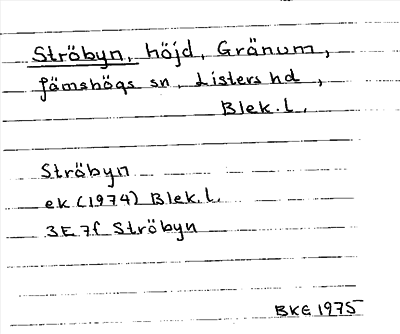 Ströbyn, höjd, Gränum,
Jämshögs sn, Listers hd,
Blek.l.
Ströbyn
ek (1974) Blek.l.
3E 7f Ströbyn
BKE 1975